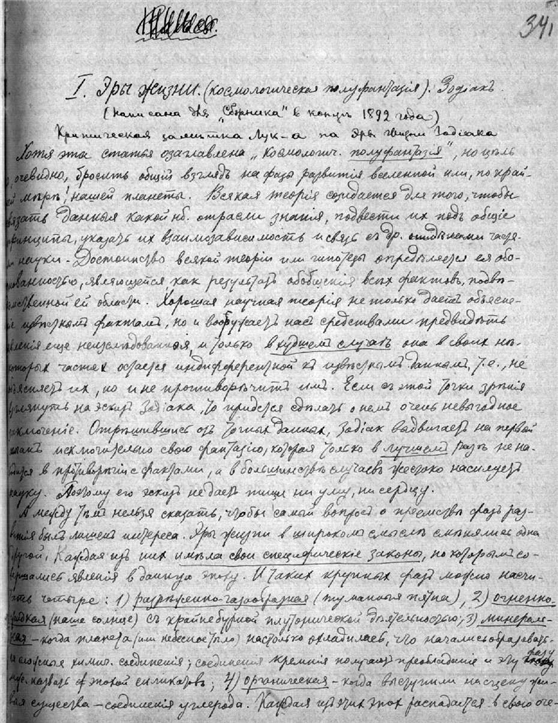 341
I. Эры жизни. (космологическая полуфантазiя). Зодiакъ
(написана для "Сборника" въ концѣ 1892 года.)
Критическая замѣтка Лук-а на Эры жизни Зодiака
Хотя эта статья озаглавлена "космологич. полуфантазiя", но цѣль
, очевидно, бросить общiй взглядъ на фазы развитiя вселенной или, по край-
й мѣрѣ, нашей планеты. Всякая теорiя создается для того, чтобы
вязать данныя какой нб. отрасли знанiя, подвести ихъ подъ общiе
принципы, указать ихъ взаимозависимость и связь съ др. отдѣльными частя-
и науки. Достоинство всякой теорiи или гипотезы опредѣляется ея обо-
ванностью, являющейся какъ результатъ обобщенiя всѣхъ фактовъ, подвѣ-
мственной ей области. Хорошая научная теорiя не только даетъ объясне-
е извѣстнымъ фактамъ, но и вооружаетъ насъ средствами предвидѣть
явленiя еще неизслѣдованныя, и только въ худшемъ случаѣ она въ своихъ нѣ-
которыхъ частяхъ остается индифферентной къ извѣстнымъ даннымъ, т.е., не
объясняетъ ихъ, но и не противорѣчитъ имъ. Если съ этой точки зрѣнiя
взглянуть на эскизъ Зодiака, то придется сдѣлать о немъ очень невыгодное
заключенiе. Отрѣшившись отъ точныхъ данныхъ, Зодiакъ выдвигаетъ на первый
планъ исключительно свою фантазiю, которая только въ лучшемъ разѣ не на-
дится въ противорѣчiи съ фактами, а въ большинствѣ случаевъ жестоко насилуетъ
науку. Поэтому его эскизъ не даетъ пищи ни уму, ни сердцу.
А между тѣмъ нельзя сказать, чтобы самый вопросъ о преемствѣ фазъ раз-
витiя былъ лишенъ интереса. Эры жизни въ широкомъ смыслѣ смѣнялись одна
другой. Каждая изъ нихъ имѣла свои специфическiе законы, по которымъ со-
вершались явленiя въ данную эпоху. И такихъ крупныхъ фазъ можно насчи-
ть четыре: 1) разрѣженно-газообразная (туманныя пятна), 2) огненно-
жидкая (наше солнце) съ крайне бурной плутонической дѣятельностью; 3) минераль-
ная - когда планета (или небесное тѣло) настолько охладилась, что начали образовать-
ся сложныя химич. соединенiя; соединенiя кремнiя получаютъ преобладанiе и эту фазу
назвать эпохой силикатовъ; 4) органическая - когда выступили на сцену жи-
выя существа - соединенiя углерода. Каждая изъ этихъ эпохъ распадается въ свою оче-